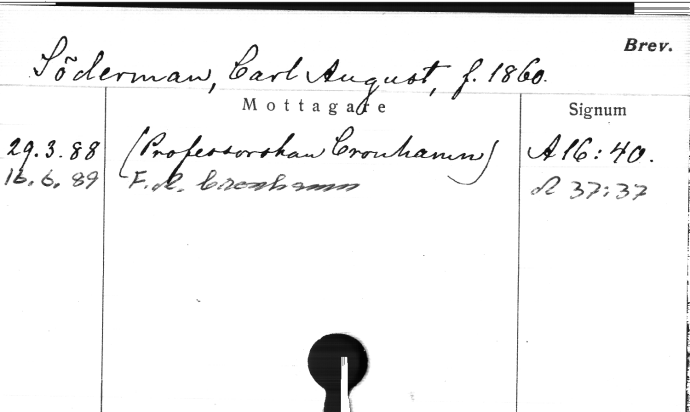 Brev.
Söderman, Carl August, f. 1860.
Mottagare
Signum
29.3.88 (Professorskan Cronhamn) A16:40.
16.6.89 F. A. Cronhamn A 37:37